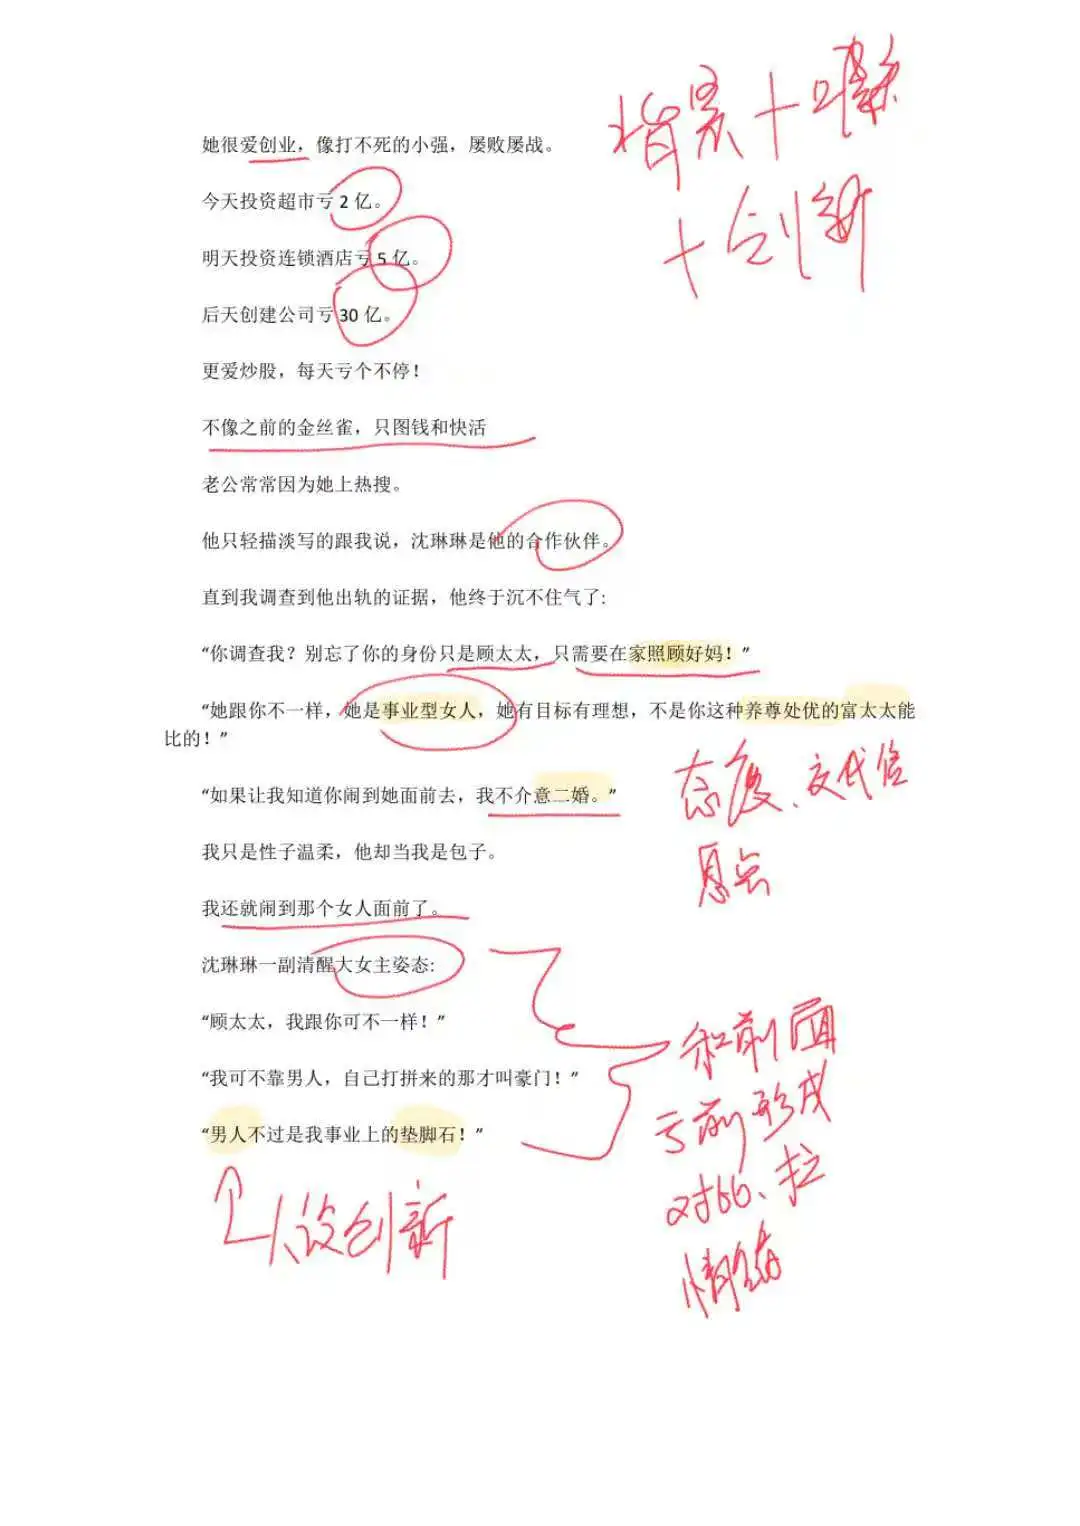 背景+噱
+创新
她很爱创业，像打不死的小强，屡败屡战。
今天投资超市亏 2 亿。
明天投资连锁酒店亏 5 亿。
后天创建公司亏 30 亿。
更爱炒股，每天亏个不停！
不像之前的金丝雀，只图钱和快活
老公常常因为她上热搜。
他只轻描淡写的跟我说，沈琳琳是他的合作伙伴。
直到我调查到他出轨的证据，他终于沉不住气了:
“你调查我？别忘了你的身份只是顾太太，只需要在家照顾好妈！”
“她跟你不一样，她是事业型女人，她有目标有理想，不是你这种养尊处优的富太太能
比的！”
态度、交代信
息
“如果让我知道你闹到她面前去，我不介意二婚。”
我只是性子温柔，他却当我是包子。
我还就闹到那个女人面前了。
沈琳琳一副清醒大女主姿态:
“顾太太，我跟你可不一样！”
“我可不靠男人，自己打拼来的那才叫豪门！”
“男人不过是我事业上的垫脚石！”
和前面
亏前形成
对比、拉
情绪
人设创新